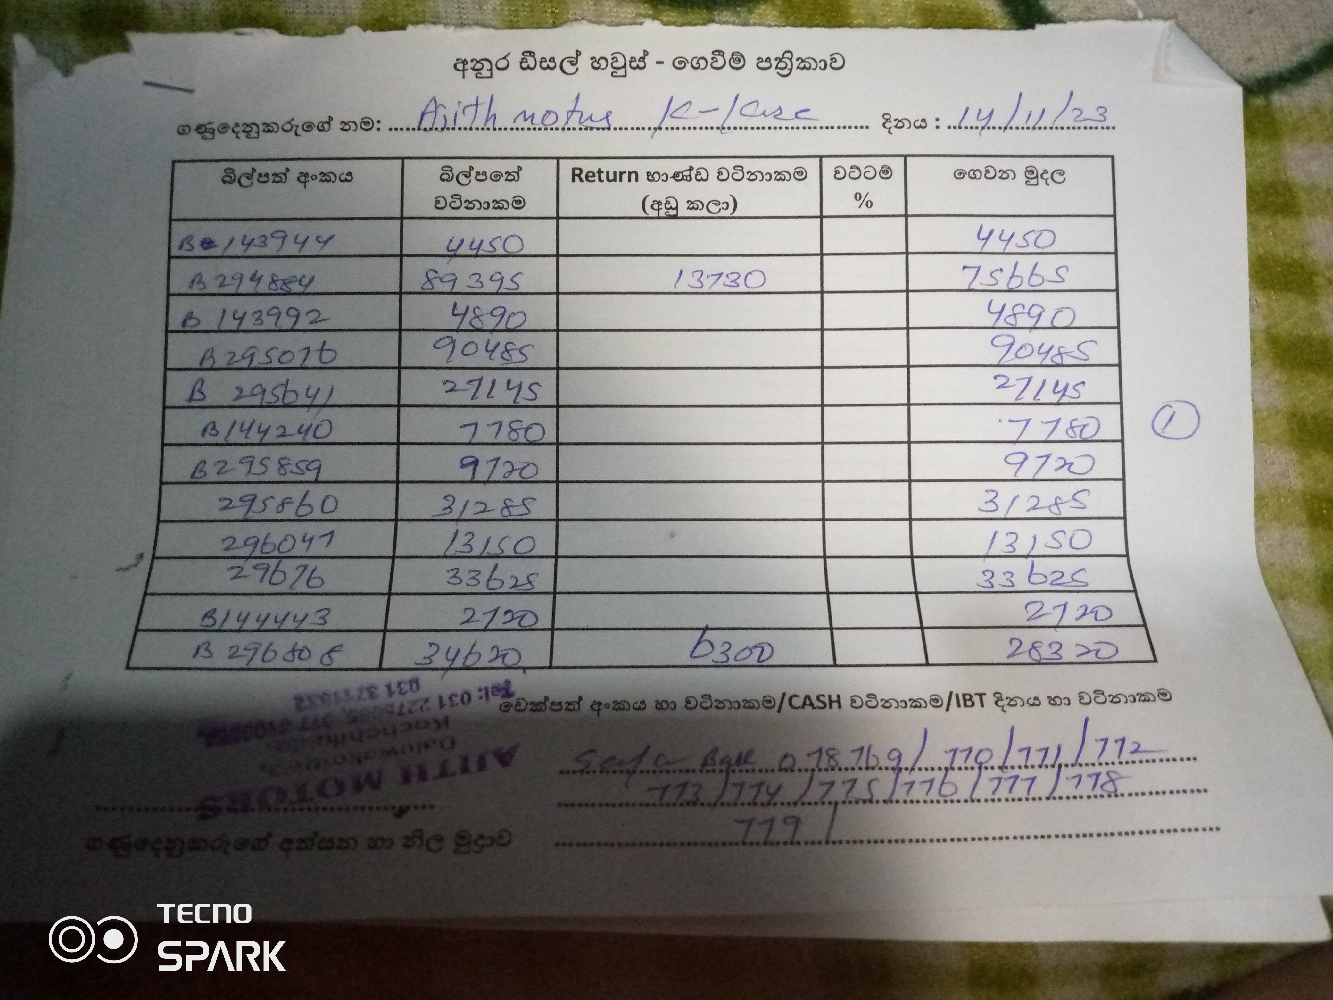 අනුර ඩීසල් හවුස් - ගෙවීම් පත්‍රිකාව
ගණුදෙනුකරුගේ නම: Ajith motus දිනය : 14/11/23
බිල්පත් අංකය බිල්පතේ වටිනාකම Return භාණ්ඩ වටිනාකම (අඩු කලා) වට්ටම් % ගෙවන මුදල
B 143944 4450 4450
B 294884 89395 13730 75665
B 143992 4890 4890
B 295076 90485 90485
B 295641 27145 27145
B 144240 7780 7780
B 295859 9720 9720
295860 31285 31285
296047 13150 13150
29676 33625 33625
B 144443 2720 2720
B 296808 34620 6300 28320
1
චෙක්පත් අංකය හා වටිනාකම/CASH වටිනාකම/IBT දිනය හා වටිනාකම
078769/ 770/771/772
773/774/775/776/777/778
779/
AJITH MOTORS
Tel: 031
ගණුදෙනුකරුගේ අත්සන හා නිල මුද්‍රාව
TECNO
SPARK